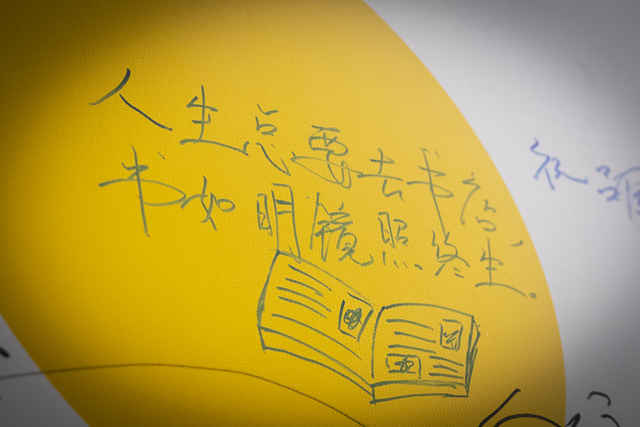 人生总要去书店
书如明镜照终生。